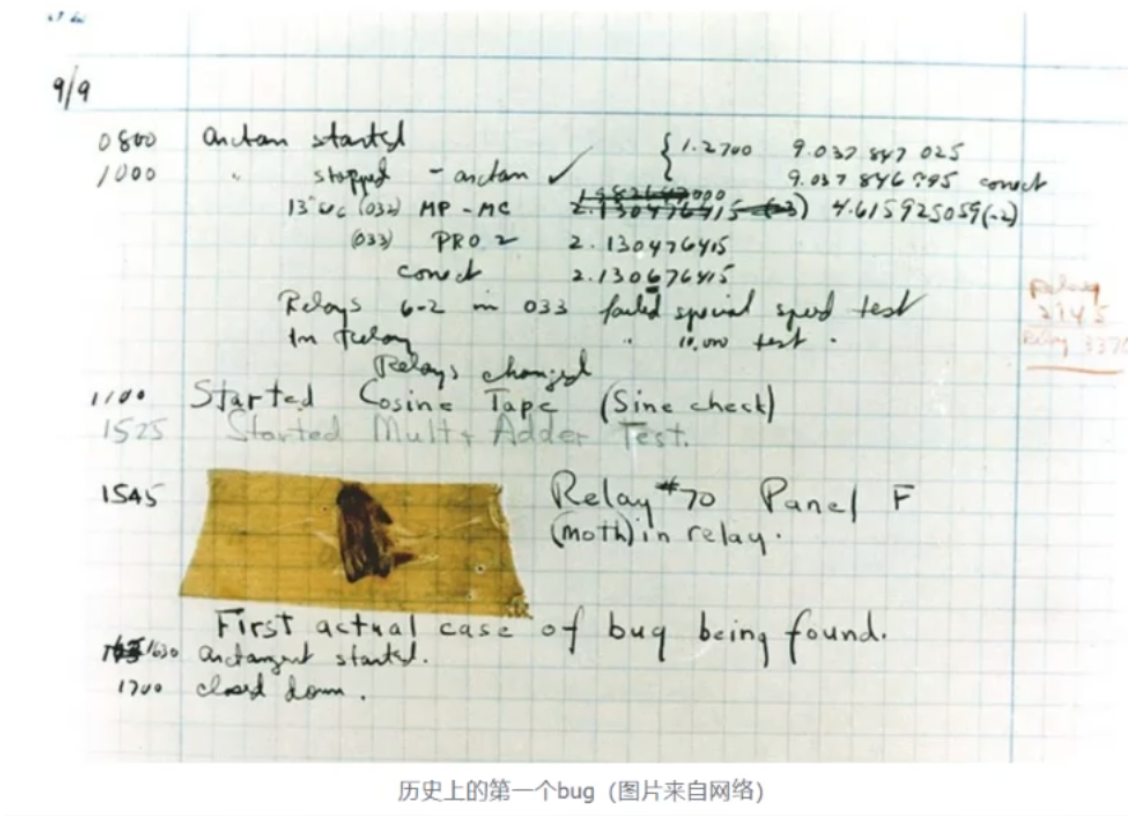 9/9
0800 arctan started { 1.2700 9.037 847 025
1000 " stopped - arctan ✓ 9.037 846 795 conect
13"uc (032) MP - MC 2.130476415 (-3) 4.615925059(-2)
(033) PRO 2 2.130476415
conect 2.130676415
Relays 6-2 in 033 failed special speed test
In Relay " 10,000 test .
Relay
2145
Relay 3370
Relays changed
1100 Started Cosine Tape (Sine check)
1525 Started Mult + Adder Test.
1545 Relay #70 Panel F
(moth) in relay.
First actual case of bug being found.
1630 arctangent started.
1700 closed down.
历史上的第一个bug（图片来自网络）